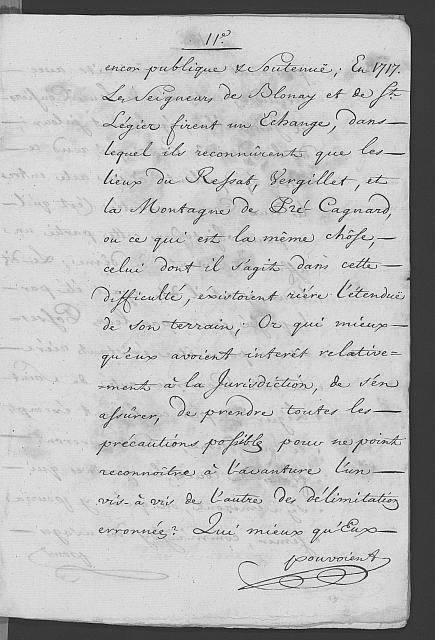 11.e
encor publique & Soutenuë; En 1717.
Les Seigneurs de Blonay et de St.
Légier firent un Echange, dans—
lequel ils reconnûrent que les—
lieux du Ressat, Vergillet, et
la Montagne de Pré Cagnard,
ou ce qui est la même chôse,—
celui dont il s'agit dans cette—
difficulté, existoient riére l'étenduë
de son terrain; Or qui mieux—
qu'eux avoient interêt relative=
=ment à la Jurisdiction, de s'en
assûrer, de prendre toutes les—
précautions possibles pour ne point
reconnoître à l'avanture l'un—
vis-à vis de l'autre des délimitations
erronnées? Qui mieux qu'Eux—
pouvoient